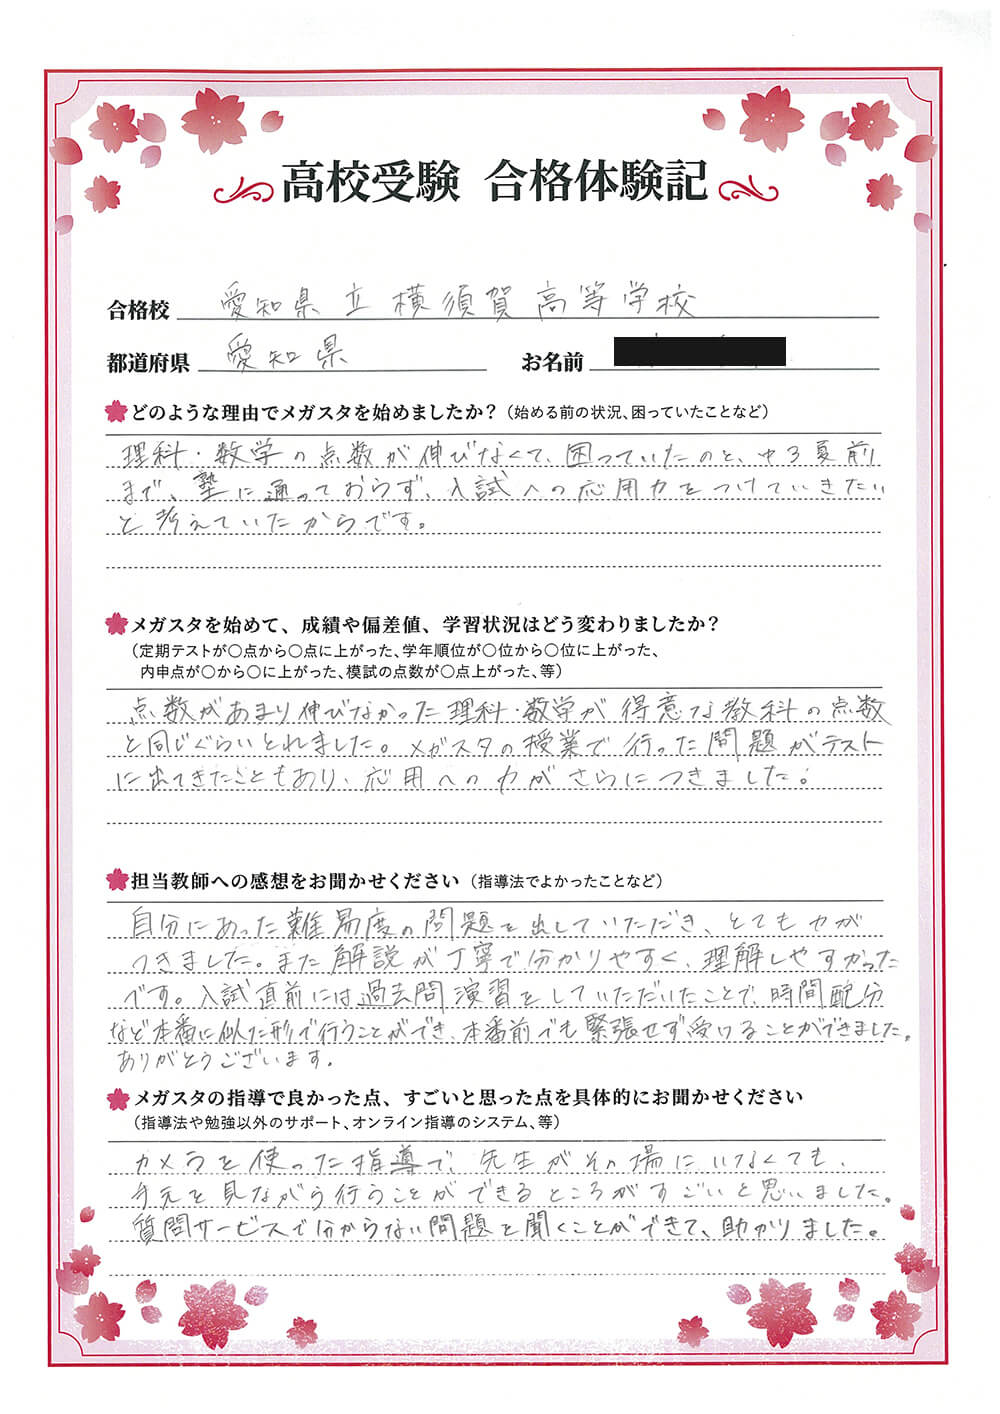 高校受験 合格体験記
合格校 愛知県立横須賀高等学校
都道府県 愛知県 お名前
どのような理由でメガスタを始めましたか？（始める前の状況、困っていたことなど）
理科・数学の点数が伸びなくて、困っていたのと、中3夏前
まで、塾に通っておらず、入試への応用力をつけていきたい
と考えていたからです。
メガスタを始めて、成績や偏差値、学習状況はどう変わりましたか？
（定期テストが〇点から〇点に上がった、学年順位が〇位から〇位に上がった、
内申点が〇から〇に上がった、模試の点数が〇点上がった、等）
点数があまり伸びなかった理科・数学が得意な教科の点数
と同じぐらいとれました。メガスタの授業で行った問題がテスト
に出てきたこともあり、応用への力がさらにつきました。
担当教師への感想をお聞かせください（指導法でよかったことなど）
自分にあった難易度の問題を出していただき、とても力が
つきました。また解説が丁寧で分かりやすく、理解しやすかった
です。入試直前には過去問演習をしていただいたことで、時間配分
など本番に似た形で行うことができ、本番前でも緊張せず受けることができました。
ありがとうございます。
メガスタの指導で良かった点、すごいと思った点を具体的にお聞かせください
（指導法や勉強以外のサポート、オンライン指導のシステム、等）
カメラを使った指導で、先生がその場にいなくても、
手元を見ながら行うことができるところがすごいと思いました。
質問サービスで分からない問題を聞くことができて、助かりました。